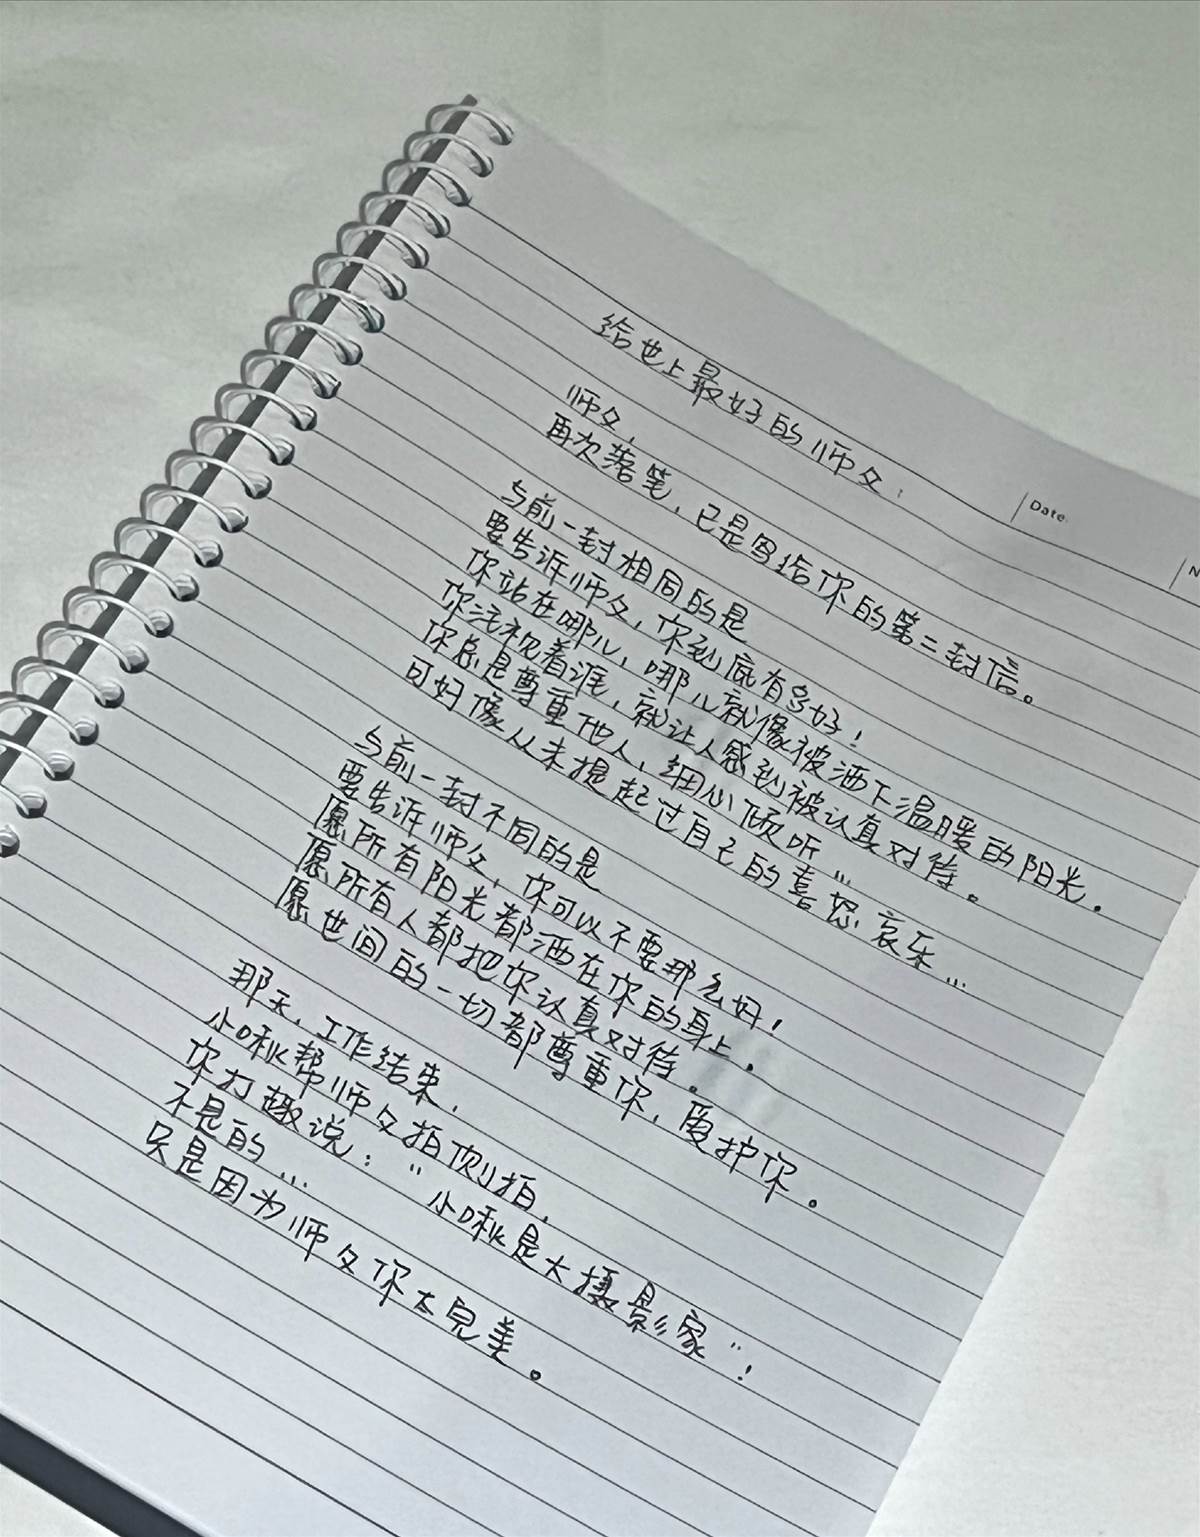 给世上最好的师父：
Date.
N
师父，
再次落笔，已是写给你的第二封信。
与前一封相同的是
要告诉师父，你到底有多好！
你站在哪儿，哪儿就像被洒下温暖的阳光。
你注视着谁，就让人感到被认真对待。
你总是尊重他人，细心倾听…
可好像从未提起过自己的喜怒哀乐…
与前一封不同的是
要告诉师父，你可以不要那么好，
愿所有阳光都洒在你的身上，
愿所有人都把你认真对待。
愿世间的一切都尊重你，爱护你。
那天，工作结束，
小啾帮师父拍侧拍，
你打趣说：“小啾是大摄影家”！
不是的…
只是因为师父你太完美。